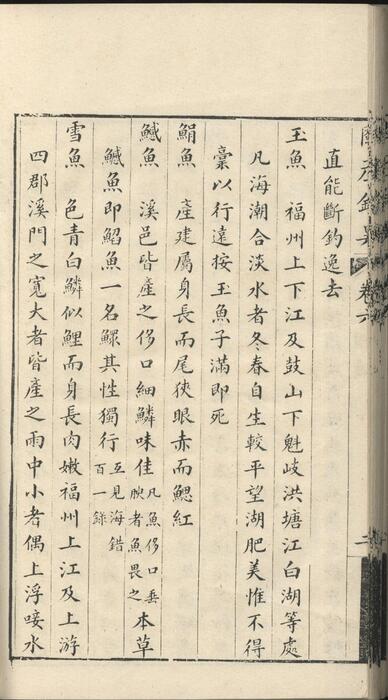 卷六
直能斷鈎逸去
玉魚　福州上下江及鼓山下魁岐洪塘江白湖等處
凡海潮合淡水者冬春自生較平望湖肥美惟不得
藁以行遠按玉魚子滿即死
鮹魚　產建屬身長而尾狹眼赤而鰓紅
鰔魚　溪邑皆產之侈口細鱗味佳凡魚侈口垂腴者魚畏之本草
鰔魚即鮥魚一名鰥其性獨行互見海錯百一錄
雪魚　色青白鱗似鯉而身長肉嫩福州上江及上游
四郡溪門之寬大者皆產之雨中小者偶上浮唼水